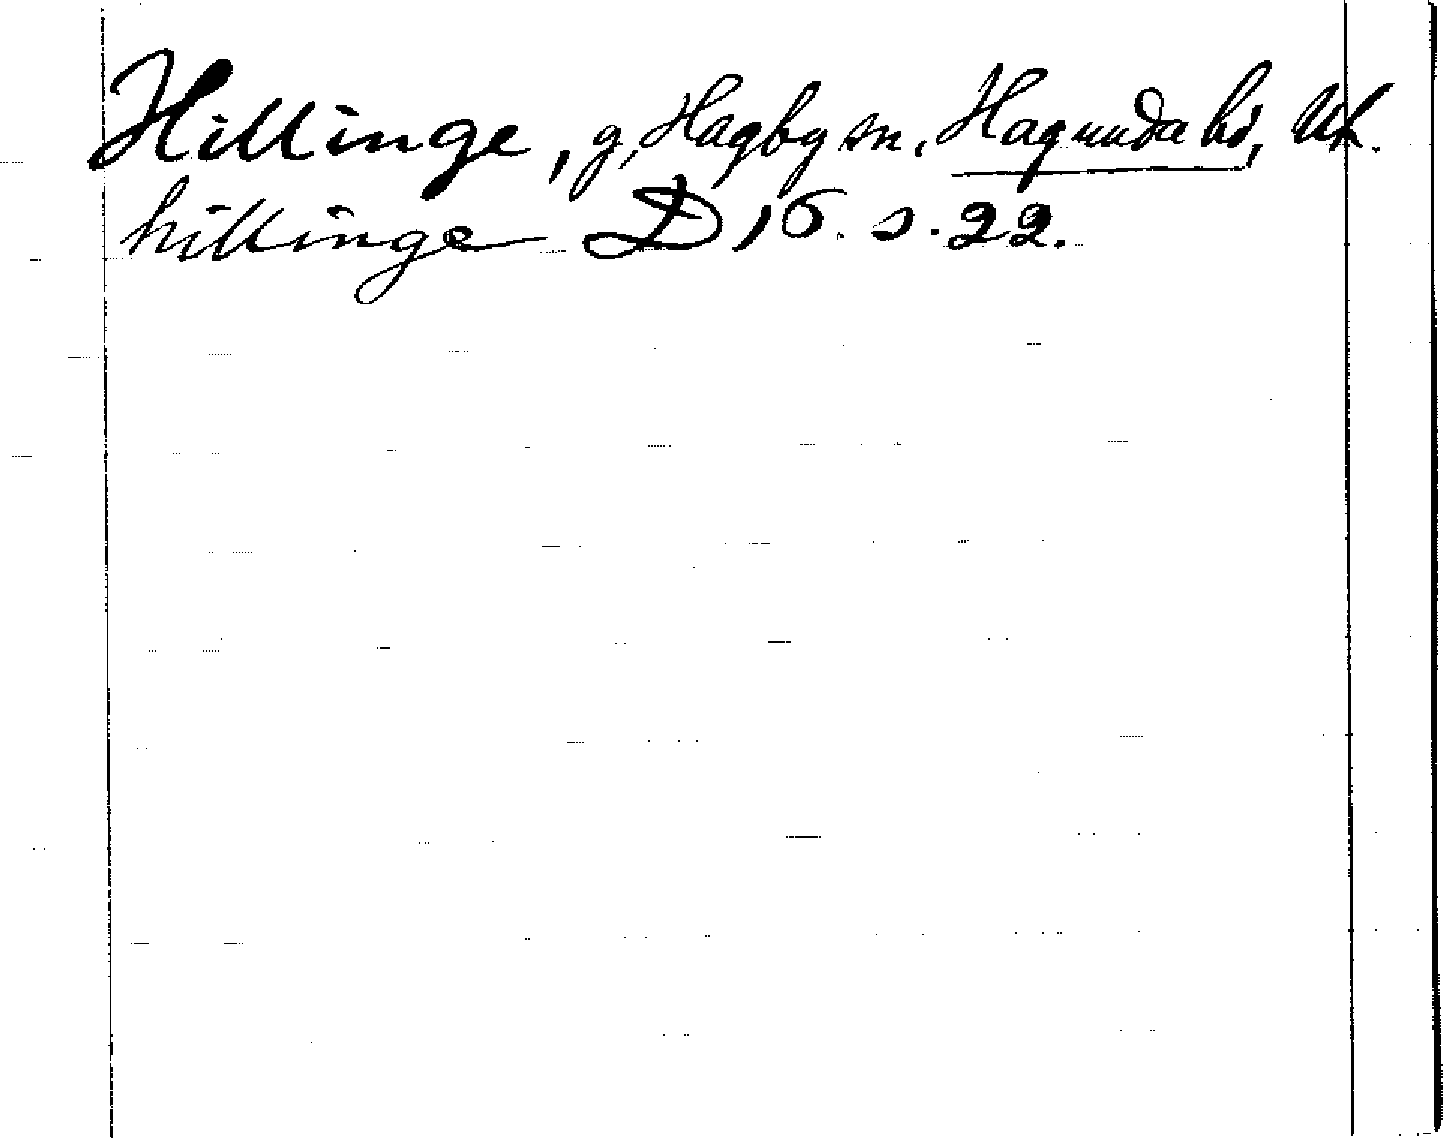 Hillinge, g, Hagby sn, Hagunda hd, Upl.
hillinge D 16. s. 22.